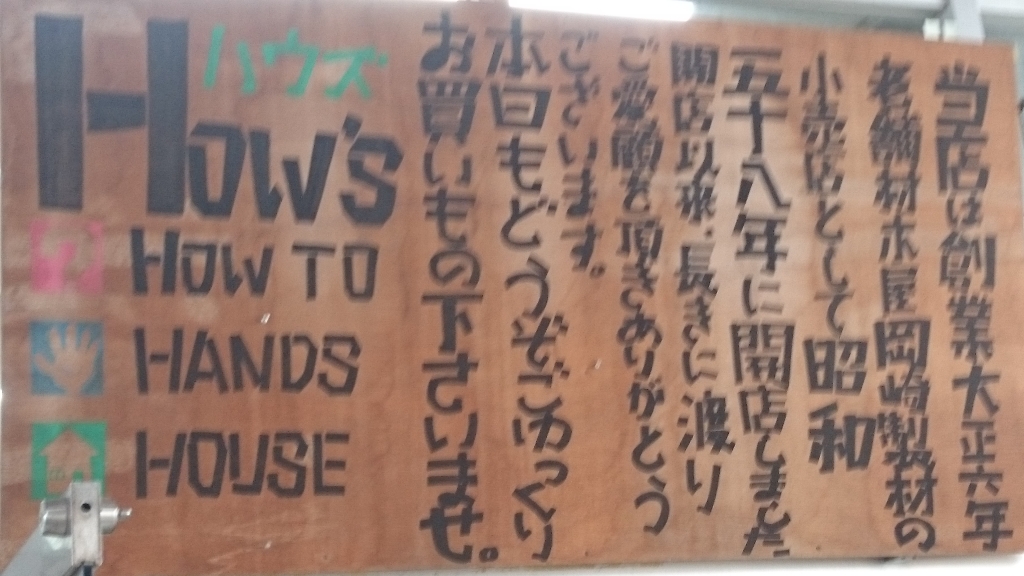 当店は創業大正六年
老舗材木屋岡崎製材の
小売店として昭和
五十八年に開店しました
開店以来、長きに渡り
ご愛顧を頂きありがとう
ございます。
本日もどうぞごゆっくり
お買いもの下さいませ。
ハウズ
How's
HOW TO
HANDS
HOUSE